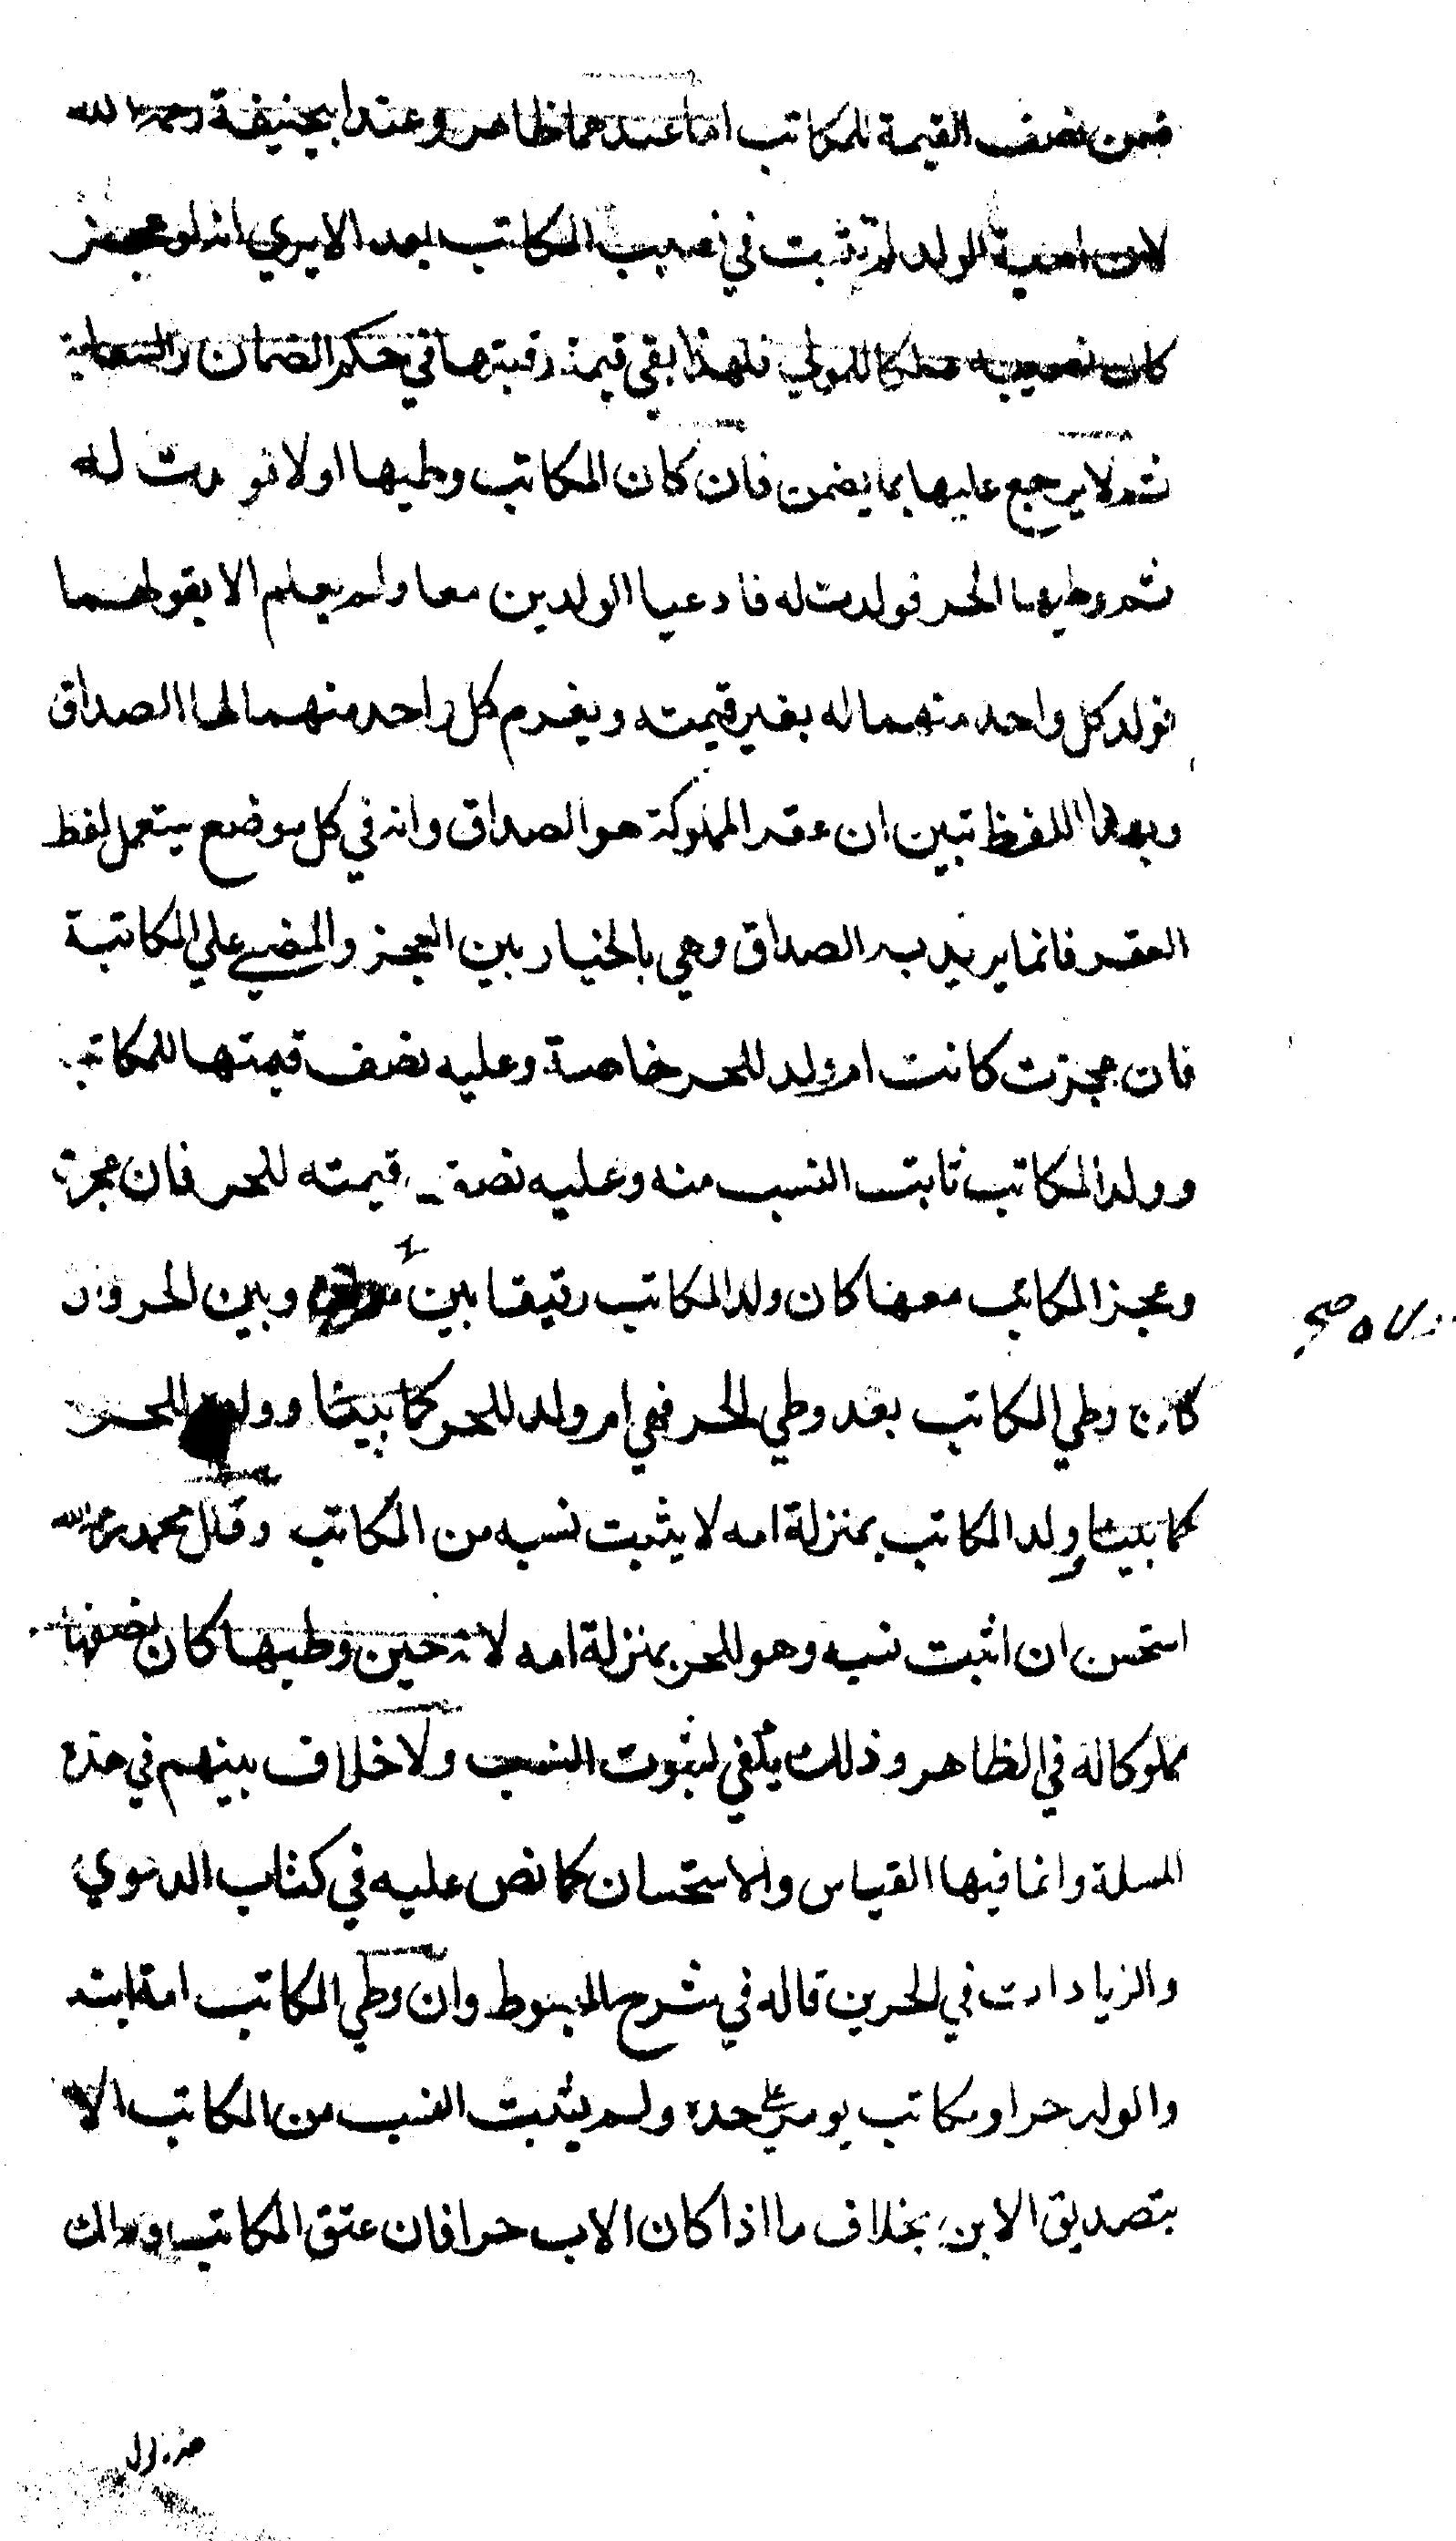 ضمن نصف القيمة للمكاتب اما عندهما ظاهر وعند ابيحنيفة رحمه الله
لان امية الولد لم تثبت في نصيب المكاتب بعد الا يري انه لو عجز
كان نصيبه ملكا للمولي فلهذا بقي قيمة رقبتها في حكم الضمان والسعاية
ثم لا يرجع عليها بما يضمن فان كان المكاتب وطيها اولا فولدت له
ثم وطيها الحر فولدت له فادعيا الولدين معا ولم يعلم الا بقولهما
فولد كل واحد منهما له بغير قيمته ويغرم كل واحد منهما لها الصداق
وبهذا اللفظ تبين ان عقر المملوكة هو الصداق وانه في كل موضع يستعمل لفظ
العقر فانما يريد به الصداق وهي بالخيار بين العجز والمضي علي المكاتبة
فان عجزت كانت ام ولد للحر خاصة وعليه نصف قيمتها للمكاتب
وولد المكاتب ثابت النسب منه وعليه نصف قيمته للحر فان عجزت
وعجز المكاتب معها كان ولد المكاتب رقيقا بين مولاه وبين الحر وان
مولاه صح
كان وطي المكاتب بعد وطي الحر فهي ام ولد للحر كما بينا وولد للحر
كما بينا وولد المكاتب بمنزلة امه لا يثبت نسبه من المكاتب وقال محمد رحمه الله
استحسن ان اثبت نسبه وهو للحر بمنزلة امه لانه حين وطيها كان نصفها
مملوكا له في الظاهر وذلك يكفي لثبوت النسب ولا خلاف بينهم في هذه
المسلة وانما فيها القياس والاستحسان كما نص عليه في كتاب الدعوي
والزيادات في الحرين قاله في شرح المبسوط وان وطي المكاتب امة ابنه
والولد حر او مكاتب يوم حده ولم يثبت النسب من المكاتب الا
بتصديق الابن بخلاف ما اذا كان الاب حرا فان عتق المكاتب وملك